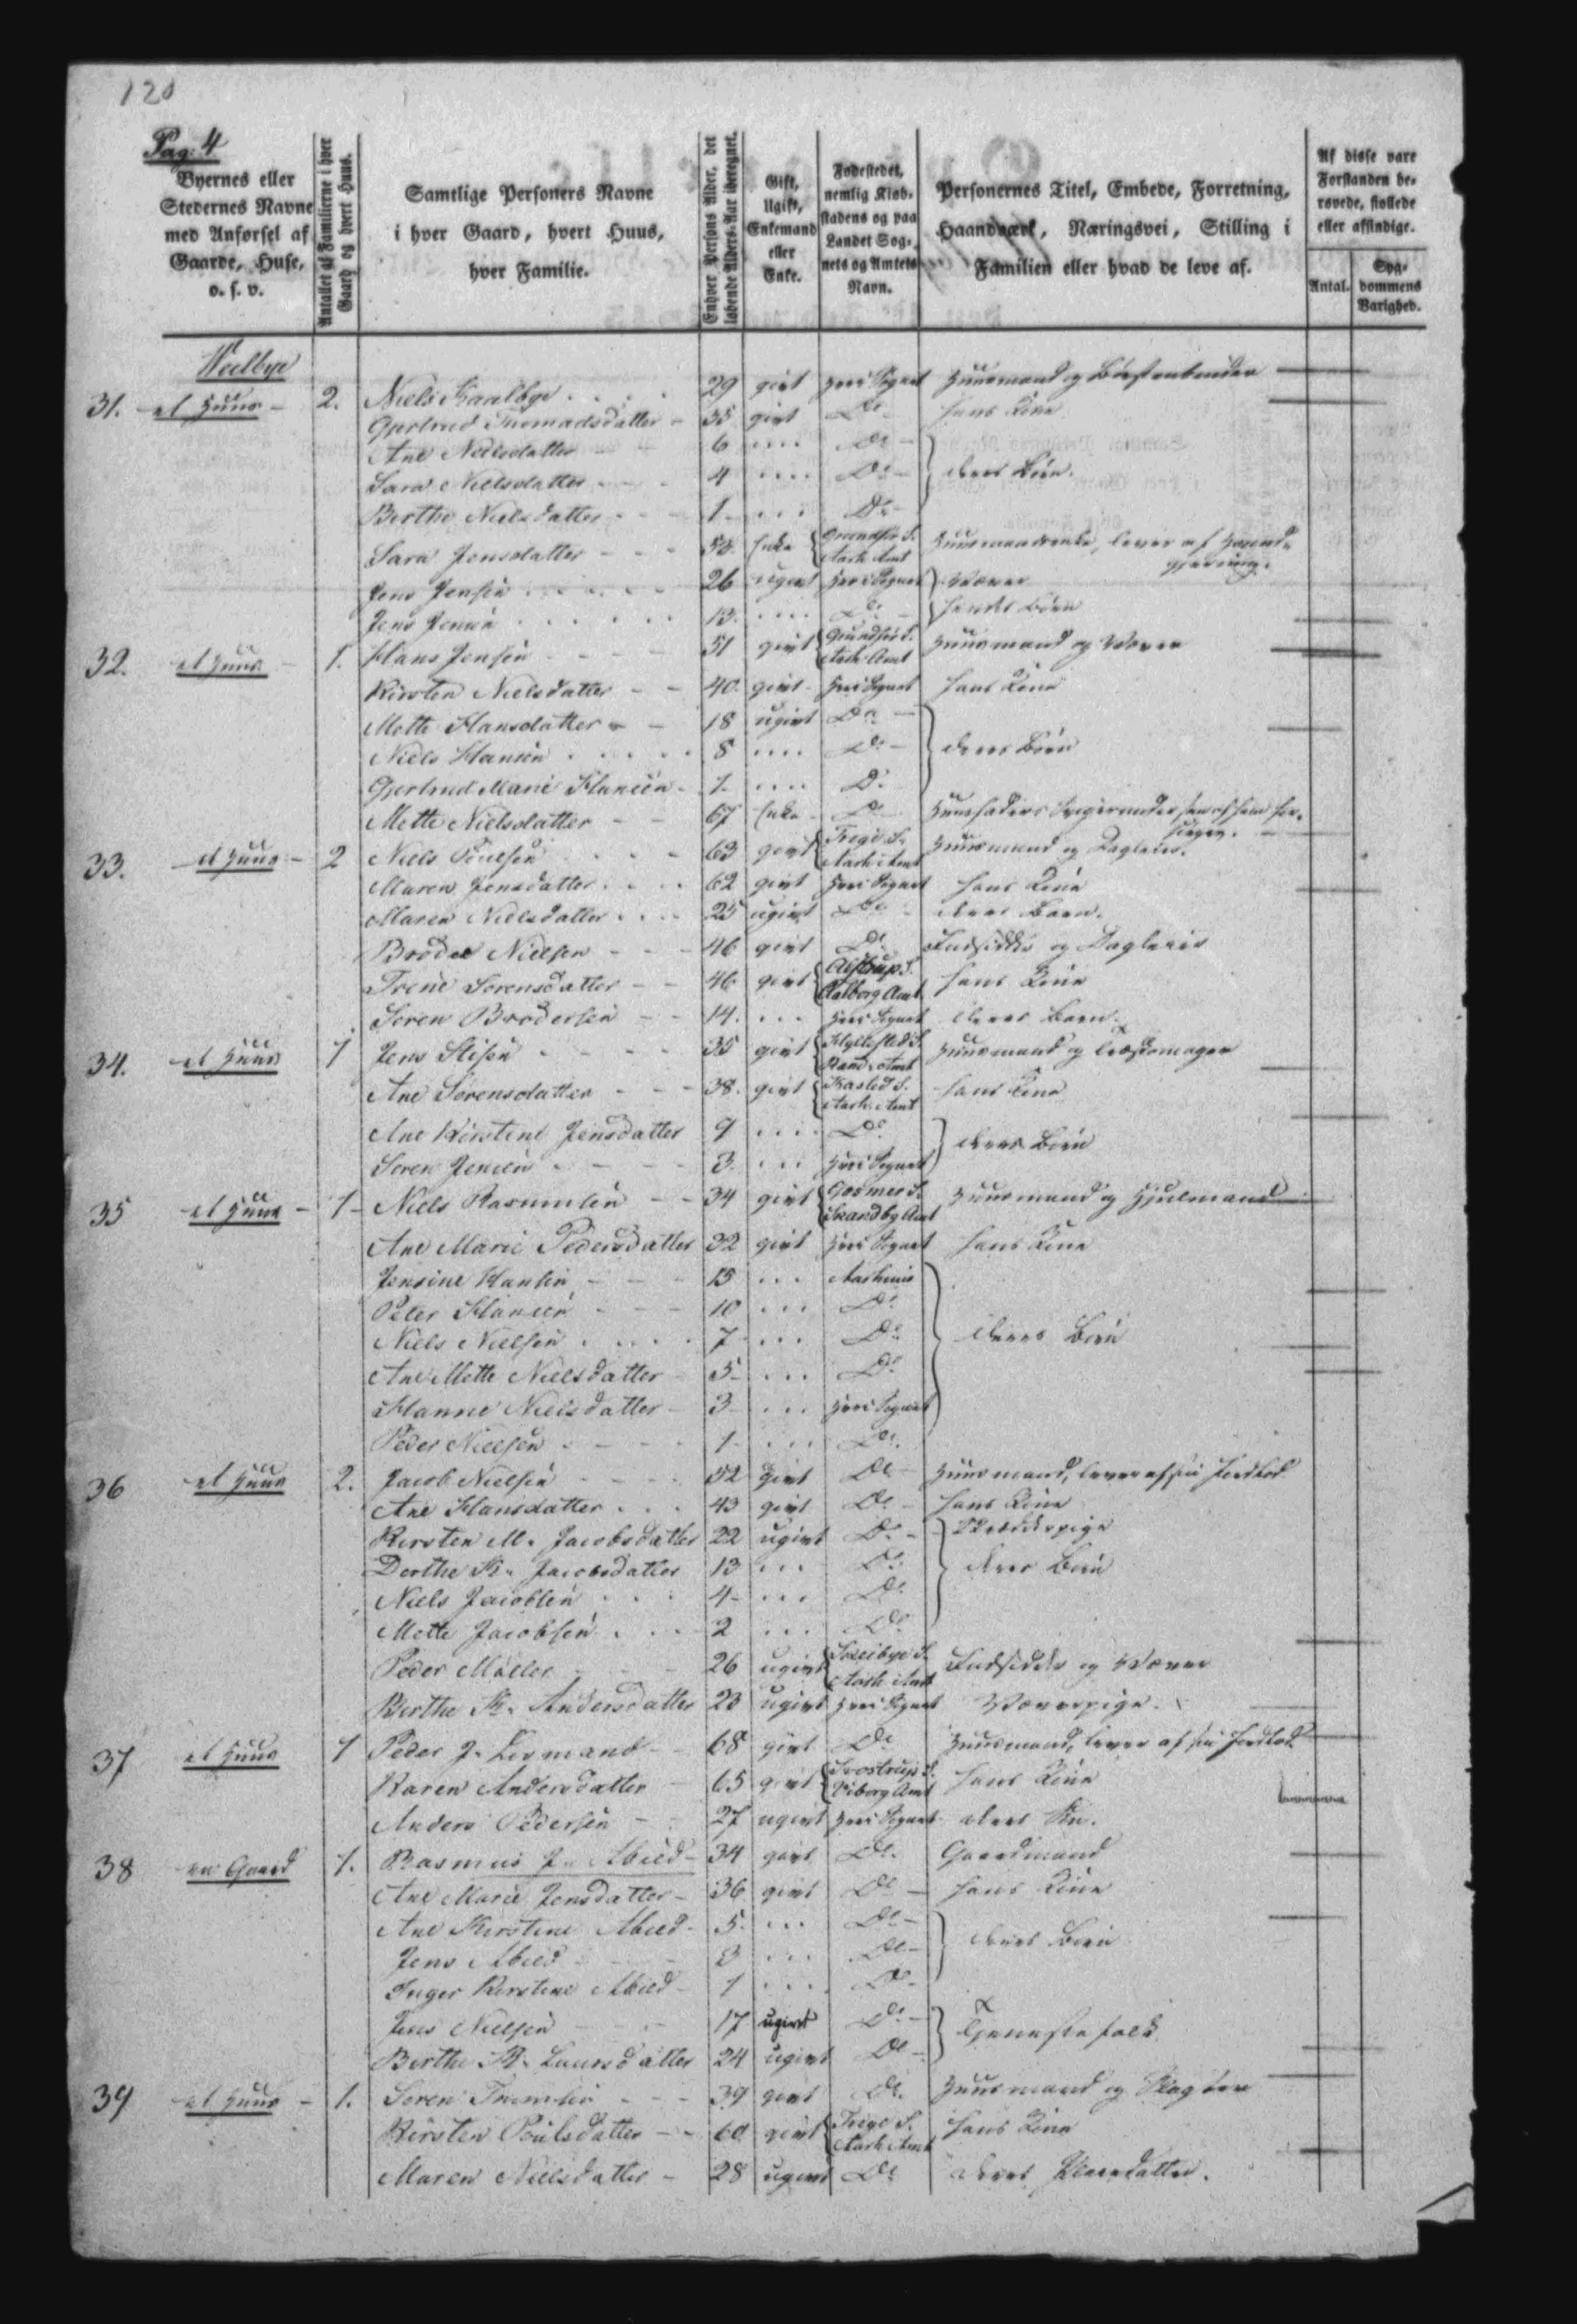 120
Pag: 4
Byernes eller Stedernes Navne med Anførsel af Gaarde, Huse, o. s. v.
Antallet af Familierne i hver Gaard og hvert Huus.
Samtlige Personers Navne i hver Gaard, hvert Huus, hver Familie.
Enhver Persons Alder, det løbende Alders-Aar iberegnet.
Gift, Ugift, Enkemand eller Enke.
Fødestedet, nemlig Kiøbstadens og paa Landet Sognets og Amtets Navn.
Personernes Titel, Embede, Forretning, Haandværk, Næringsvei, Stilling i Familien eller hvad de leve af.
Af disse vare Forstanden berøvede, stollede eller afsindige.
Antal.
Sygdommens Varighed.
31. et Huus - 2. Niels Kaalbye 29 givt her i Sognet Huusmand og Børstenbinder
Gjertrud Thomasdatter - 35 givt Do hans Kone
Ane Nielsdatter 6 .... Do -
Sara Nielsdatter 4 .... Do - deres Børn.
Berthe Nielsdatter 1 ... Do -
Sara Jensdatter 53 Enke Grundfør S. Aarh. Amt Huusmandsenke, lever af Haandgjerning.
Jens Jensen 26 ugivt her i Sognet Væver
Jens Jensen 13. .... Do - hendes Børn
32. et Huus - 1. Hans Jensen 51 givt Grundfør S. Aarh. Amt Huusmand og Væver
Kirsten Nielsdatter 40 givt her i Sognet hans Kone
Mette Hansdatter 18 ugivt Do -
Niels Hansen 8 .... Do - deres Børn
Gjertrud Marie Hansen 1 .... Do
Mette Nielsdatter 67 Enke Do
33. et Huus - 2 Niels Poulsen 63 givt Trige S. Aarh. Amt Huusmand og Dagleier.
Maren Jensdatter 62 givt her i Sognet hans Kone
Maren Nielsdatter 25 ugivt Do deres Barn.
Broder Nielsen 46 givt Do Indsidder og Dagleier
Trine Sørensdatter 46 givt Alstrup S. Aalborg Amt hans Kone
Søren Brodersen 14. ... her i Sognet deres Barn.
34. et Huus 1 Jens Stisen 35 givt S. Rand. Amt Huusmand og Træskomager
Ane Sørensdatter 38. givt Kasted S. Aarh. Amt hans Kone
Ane Kirstine Jensdatter 9 .... Do
Søren Jensen 3 ... her i Sognet deres Børn
35 et Huus - 1 - Niels Rasmussen 34 givt Gosmer S. Skandbg Amt Huusmand og Hjulmand
Ane Marie Pedersdatter 32 givt her i Sognet hans Kone
Jensine Hansen 15 ... Aarhuus
Peter Hansen 10 ... Do
Niels Nielsen 7 ... Do deres Børn
Ane Mette Nielsdatter 5 - ... Do
Hanne Nielsdatter 3 ... her i Sognet
Peder Nielsen 1 ... Do
36 et Huus 2. Jacob Nielsen 52 givt Do Huusmand, lever af sin Jordlod
Ane Hansdatter 43 givt Do - hans Kone
Kirsten M. Jacobsdatter 22 ugivt Do - Skrædderpige
Dorthe K. Jacobsdatter 13 ... Do deres Børn
Niels Jacobsen 4 - ... Do
Mette Jacobsen 2 ... Do
Peder Møller 26 ugivt S. Aarh. Amt Indsidder og Væver
Birthe K. Andersdatter 23 ugivt her i Sognet Væverpige.
37 et Huus 1 Peder J. 68 givt Do Huusmand, lever af sin Jordlod
Karen Andersdatter 65 givt S. Viborg Amt hans Kone
Anders Pedersen 27 ugivt her i Sognet deres Søn.
38 en Gaard 1. Rasmus J. Abild - 34 givt Do. Gaardmand
Ane Marie Jensdatter - 36 givt Do - hans Kone
Ane Kirstine Abild - 5. ... Do -
Jens Abild 3 ... Do - deres Børn
Inger Kirstine Abild - 1 ... Do -
Jens Nielsen 17 ugivt Do -
Birthe K. Laursdatter 24 ugivt Do - Tjenestefolk
39 et Huus - 1. Søren 39 givt Do. Huusmand og Slagter
Kirsten Poulsdatter 60 givt Trige S. Aarh. Amt hans Kone
Maren Nielsdatter - 28 ugivt Do deres Pleiedatter.